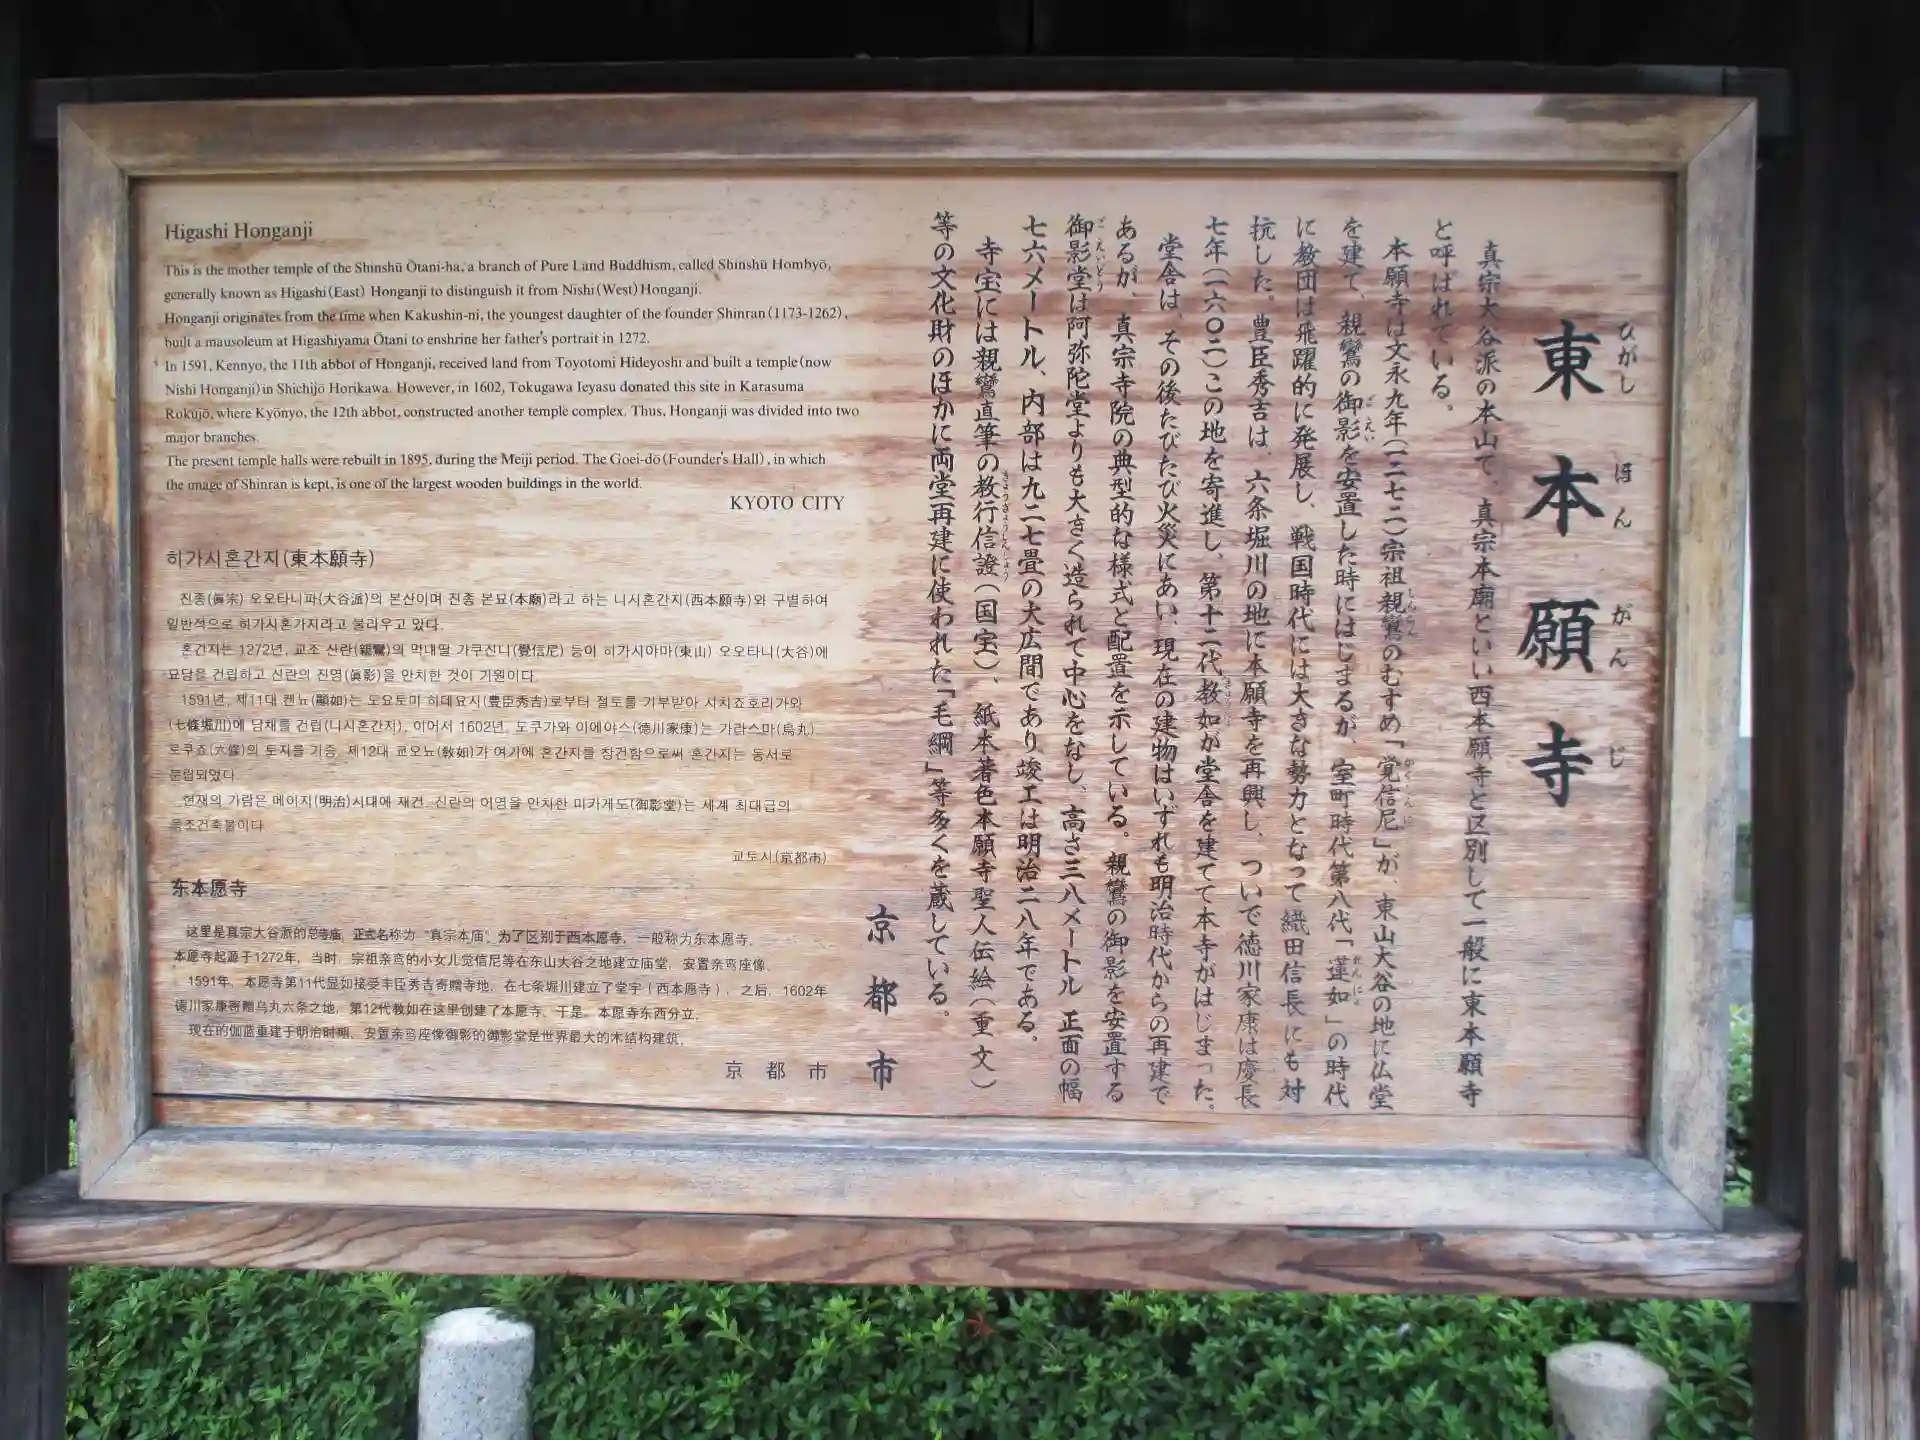 東本願寺
ひがしほんがんじ
真宗大谷派の本山で、真宗本廟といい西本願寺と区別して一般に東本願寺
と呼ばれている。
本願寺は文永九年(一二七二)宗祖親鸞のむすめ「覚信尼」が、東山大谷の地に仏堂
を建て、親鸞の御影を安置した時にはじまるが、室町時代第八代「蓮如」の時代
に教団は飛躍的に発展し、戦国時代には大きな勢力となって織田信長にも対
抗した。豊臣秀吉は、六条堀川の地に本願寺を再興し、ついで徳川家康は慶長
七年(一六〇二)この地を寄進し、第十二代教如が堂舎を建てて本寺がはじまった。
堂舎は、その後たびたび火災にあい、現在の建物はいずれも明治時代からの再建で
あるが、真宗寺院の典型的な様式と配置を示している。親鸞の御影を安置する
御影堂は阿弥陀堂よりも大きく造られて中心をなし、高さ三八メートル 正面の幅
七六メートル、内部は九二七畳の大広間であり竣工は明治二八年である。
寺宝には親鸞直筆の教行信證(国宝)、紙本著色本願寺聖人伝絵(重文)
等の文化財のほかに両堂再建に使われた「毛綱」等多くを蔵している。
京都市
Higashi Honganji
This is the mother temple of the Shinshū Ōtani-ha, a branch of Pure Land Buddhism, called Shinshū Hombyō,
generally known as Higashi (East) Honganji to distinguish it from Nishi (West) Honganji.
Honganji originates from the time when Kakushin-ni, the youngest daughter of the founder Shinran (1173-1262),
built a mausoleum at Higashiyama Ōtani to enshrine her father's portrait in 1272.
In 1591, Kennyo, the 11th abbot of Honganji, received land from Toyotomi Hideyoshi and built a temple (now
Nishi Honganji) in Shichijō Horikawa. However, in 1602, Tokugawa Ieyasu donated this site in Karasuma
Rokujō, where Kyōnyo, the 12th abbot, constructed another temple complex. Thus, Honganji was divided into two
major branches.
The present temple halls were rebuilt in 1895, during the Meiji period. The Goei-dō (Founder's Hall), in which
the image of Shinran is kept, is one of the largest wooden buildings in the world.
KYOTO CITY
히가시혼간지(東本願寺)
진종(眞宗) 오오타니파(大谷派)의 본산이며 진종 본묘(本廟)라고 하는 니시혼간지(西本願寺)와 구별하여
일반적으로 히가시혼가지라고 불리우고 있다.
혼간지는 1272년, 교조 신란(親鸞)의 막내딸 가쿠신니(覺信尼) 등이 히가시야마(東山) 오오타니(大谷)에
묘당을 건립하고 신란의 진영(眞影)을 안치한 것이 기원이다.
1591년, 제11대 켄뇨(顯如)는 도요토미 히데요시(豊臣秀吉)로부터 절토를 기부받아 시치죠호리가와
(七條堀川)에 당채를 건립(니시혼간지), 이어서 1602년, 도쿠가와 이에야스(德川家康)는 가란스마(烏丸)
로쿠죠(六條)의 토지를 기증, 제12대 교오뇨(敎如)가 여기에 혼간지를 창건함으로써 혼간지는 동서로
분립되었다.
현재의 가람은 메이지(明治)시대에 재건, 신란의 어영을 안치한 미카게도(御影堂)는 세계 최대급의
목조건축물이다.
교토시(京都市)
东本愿寺
这里是真宗大谷派的总寺庙, 正式名称为"真宗本庙", 为了区别于西本愿寺, 一般称为东本愿寺。
本愿寺起源于1272年, 当时, 宗祖亲鸾的小女儿觉信尼等在东山大谷之地建立庙堂, 安置亲鸾座像。
1591年, 本愿寺第11代显如接受丰臣秀吉寄赠寺地, 在七条堀川建立了堂宇(西本愿寺)。之后, 1602年
德川家康寄赠乌丸六条之地, 第12代教如在这里创建了本愿寺, 于是, 本愿寺东西分立。
现在的伽蓝重建于明治时期, 安置亲鸾座像御影的御影堂是世界最大的木结构建筑。
京都市